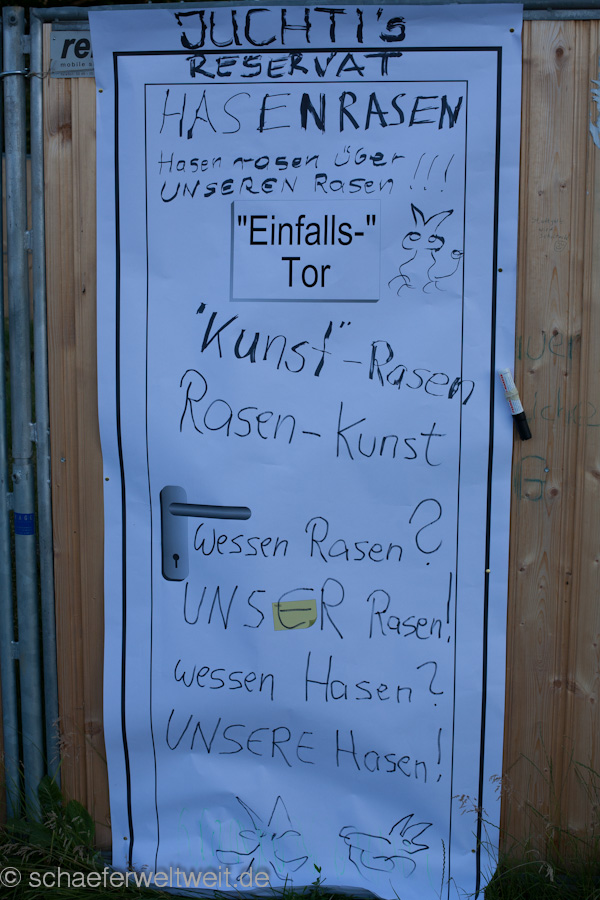 JUCHTI's
RESERVAT
HASENRASEN
Hasen rasen über
UNSEREN Rasen !!!
"Einfalls-"
Tor
"Kunst"-Rasen
Rasen-Kunst
wessen Rasen?
UNSER Rasen!
wessen Hasen?
UNSERE Hasen!
© schaeferweltweit.de